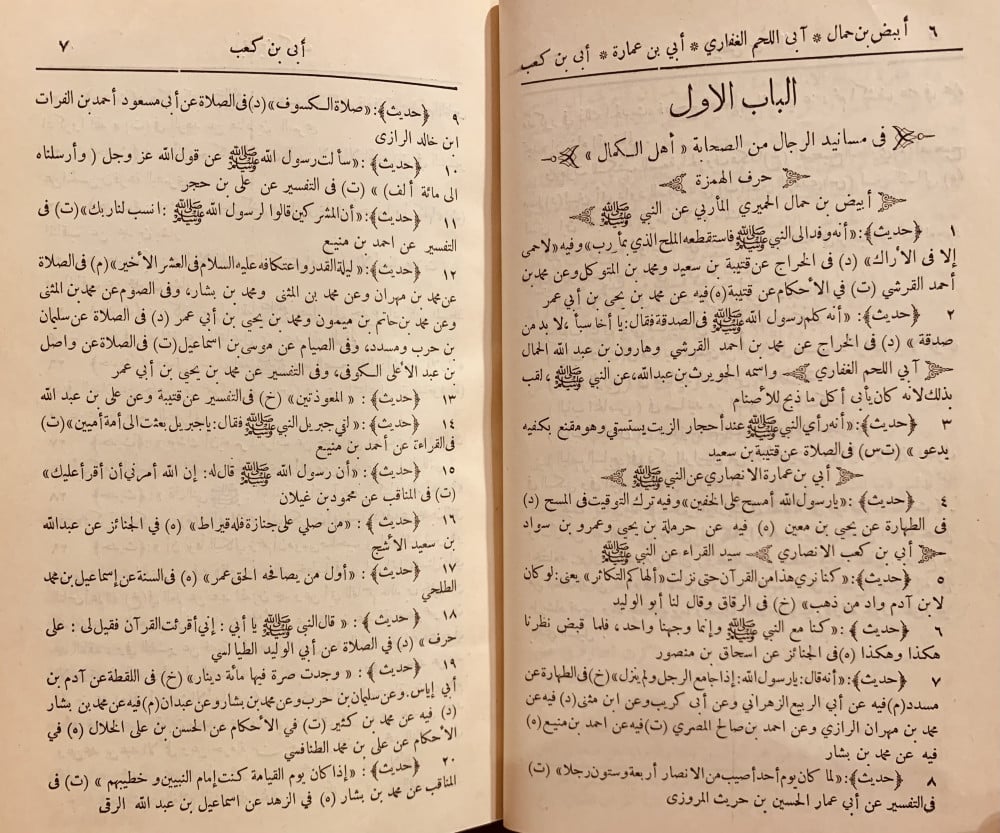 ٦ أبيض بن حمال * آبى اللحم الغفاري * أبي بن عمارة * أبى بن كعب
الباب الاول
فى مسانيد الرجال من الصحابة « أهل الكمال »
حرف الهمزة
أبيض بن حمال الحميري المأربي عن النبي ﷺ
١ ﴿حديث﴾: «أنه وفد الى النبي ﷺ فاستقطعه الملح الذي بمأرب» وفيه «لاحمى
إلا فى الأراك» (د) فى الخراج عن قتيبة بن سعيد ومحمد بن المتوكل وعن محمد بن
أحمد القرشي (ت) في الأحكام عن قتيبة (ه) فيه عن محمد بن يحيى بن أبي عمر
٢ ﴿حديث﴾: «أنه كلم رسول الله ﷺ فى الصدقة فقال: يا أخا سبأ، لا بد من
صدقة» (د) فى الخراج عن محمد بن أحمد القرشي وهارون بن عبد الله الحمال
آبي اللحم الغفاري واسمه الحويرث بن عبدالله، عن النبي ﷺ، لقب
بذلك لأنه كان يأبى أكل ما ذبح للأصنام
٣ ﴿حديث﴾: «أنه رأي النبي ﷺ عند أحجار الزيت يستسقي وهو مقنع بكفيه
يدعو» (ت س) فى الصلاة عن قتيبة بن سعيد
أبي بن عمارة الانصاري عن النبي ﷺ
٤ ﴿حديث﴾: «يا رسول الله أمسح على الخفين» وفيه ترك التوقيت فى المسح (د)
فى الطهارة عن يحيى بن معين (ه) فيه عن حرملة بن يحيى وعمرو بن سواد
أبي بن كعب الانصاري سيد القراء عن النبي ﷺ
٥ ﴿حديث﴾: «كنا نرى هذا من القرآن حتى نزلت «ألهاكم التكاثر» يعنى: لو كان
لابن آدم واد من ذهب» (خ) فى الرقاق وقال لنا أبو الوليد
٦ ﴿حديث﴾: «كنا مع النبي ﷺ وإنما وجهنا واحد، فلما قبض نظرنا
هكذا وهكذا (ه) فى الجنائز عن اسحاق بن منصور
٧ ﴿حديث﴾: «أنه قال: يا رسول الله: إذا جامع الرجل ولم ينزل» (خ) فى الطهارة عن
مسدد (م) فيه عن أبي الربيع الزهراني وعن أبى كريب وعن ابن مثنى (د) فيه عن
محمد بن مهران الرازي وعن أحمد بن صالح المصري (ت) فيه عن احمد بن منيع (ه)
فيه عن محمد بن بشار
٨ ﴿حديث﴾: «لما كان يوم أحد أصيب من الانصار أربعة وستون رجلا» (ت)
فى التفسير عن أبي عمار الحسين بن حريث المروزى
أبى بن كعب ٧
٩ ﴿حديث﴾: «صلاة الكسوف» (د) فى الصلاة عن أبي مسعود أحمد بن الفرات
ابن خالد الرازى
١٠ ﴿حديث﴾: «سألت رسول الله ﷺ عن قول الله عز وجل (وأرسلناه
الى مائة ألف)» (ت) فى التفسير عن على بن حجر
١١ ﴿حديث﴾: «أن المشركين قالوا لرسول الله ﷺ: انسب لنا ربك» (ت) فى
التفسير عن احمد بن منيع
١٢ ﴿حديث﴾: «ليلة القدر واعتكافه عليه السلام فى العشر الأخير» (م) فى الصلاة
عن محمد بن مهران وعن محمد بن المثنى ومحمد بن بشار، وفى الصوم عن محمد بن المثنى
وعن محمد بن حاتم بن ميمون ومحمد بن يحيى بن أبي عمر (د) فى الصلاة عن سليمان
بن حرب ومسدد، وفى الصيام عن موسى بن اسماعيل (ت) فى الصلاة عن واصل
بن عبد الأعلى الكوفى، وفى التفسير عن محمد بن يحيى بن أبي عمر
١٣ ﴿حديث﴾: «المعوذتين» (خ) فى التفسير عن قتيبة وعن على بن عبد الله
١٤ ﴿حديث﴾: «لقي جبريل النبي ﷺ فقال: يا جبريل بعثت الى أمة أميين» (ت)
فى القراءة، عن أحمد بن منيع
١٥ ﴿حديث﴾: «أن رسول الله ﷺ قال له: إن الله أمرني أن أقرأ عليك»
(ت) فى المناقب عن محمود بن غيلان
١٦ ﴿حديث﴾: «من صلي على جنازة فله قيراط» (ه) في الجنائز عن عبدالله
بن سعيد الأشج
١٧ ﴿حديث﴾: «أول من يصافحه الحق عمر» (ه) فى السنة عن إسماعيل بن محمد
الطلحي
١٨ ﴿حديث﴾: «قال النبي ﷺ يا أبي: إني أقرئت القرآن فقيل لى: على
حرف» (د) فى الصلاة عن أبي الوليد الطيالسي
١٩ ﴿حديث﴾: «وجدت صرة فيها مائة دينار» (خ) فى اللقطة عن آدم بن
أبي إياس. وعن سليمان بن حرب وعن محمد بن بشار وعن عبدان (م) فيه عن محمد بن بشار
(د) فيه عن محمد بن كثير (ت) فى الأحكام عن الحسن بن على الخلال (ه) في
الأحكام عن على بن محمد الطنافسي
٢٠ ﴿حديث﴾: «إذا كان يوم القيامة كنت إمام النبيين و خطيبهم» (ت) فى
المناقب عن محمد بن بشار (ه) في الزهد عن اسماعيل بن عبد الله الرقى